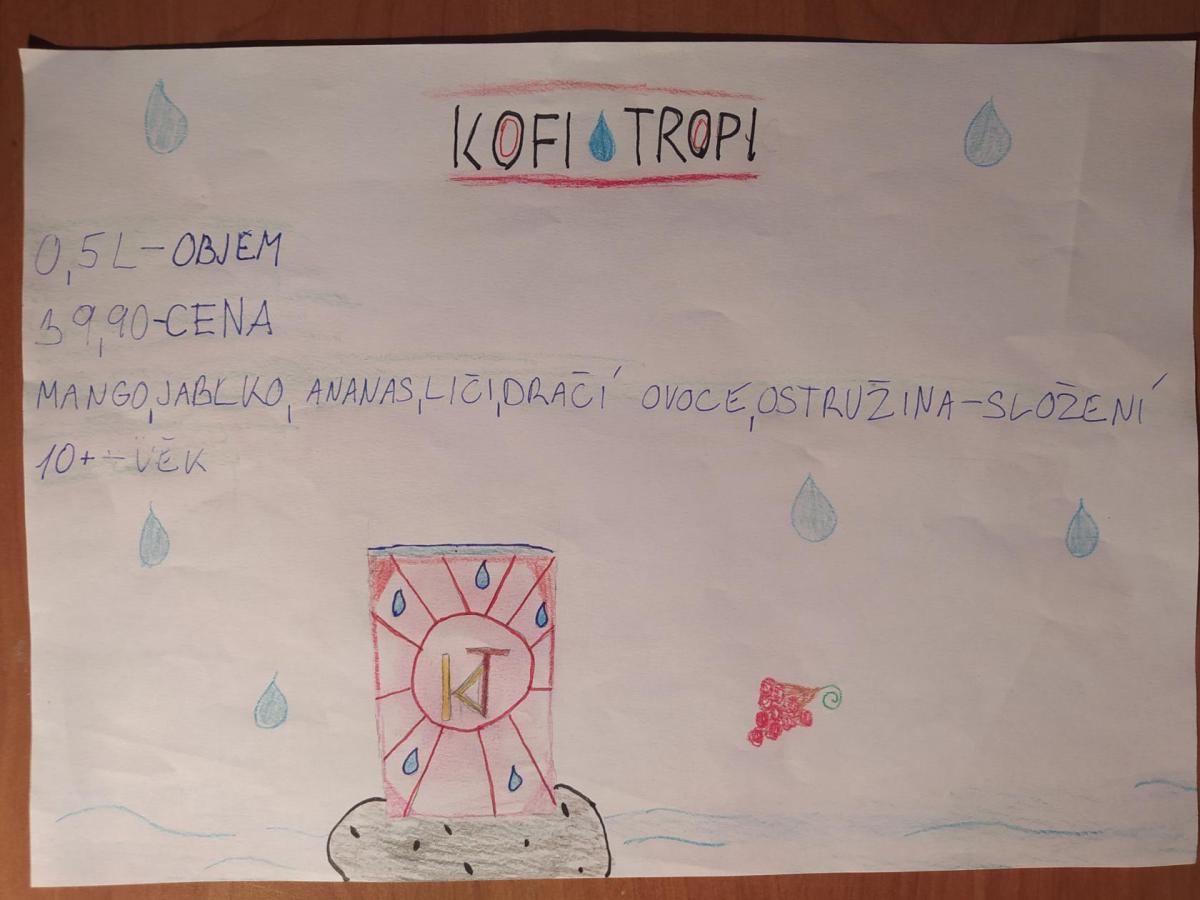 KOFI TROPI
0,5L-OBJEM
39,90-CENA
MANGO,JABLKO, ANANAS,LIČI,DRAČÍ OVOCE,OSTRUŽINA-SLOŽENÍ
10+-VĚK
KT